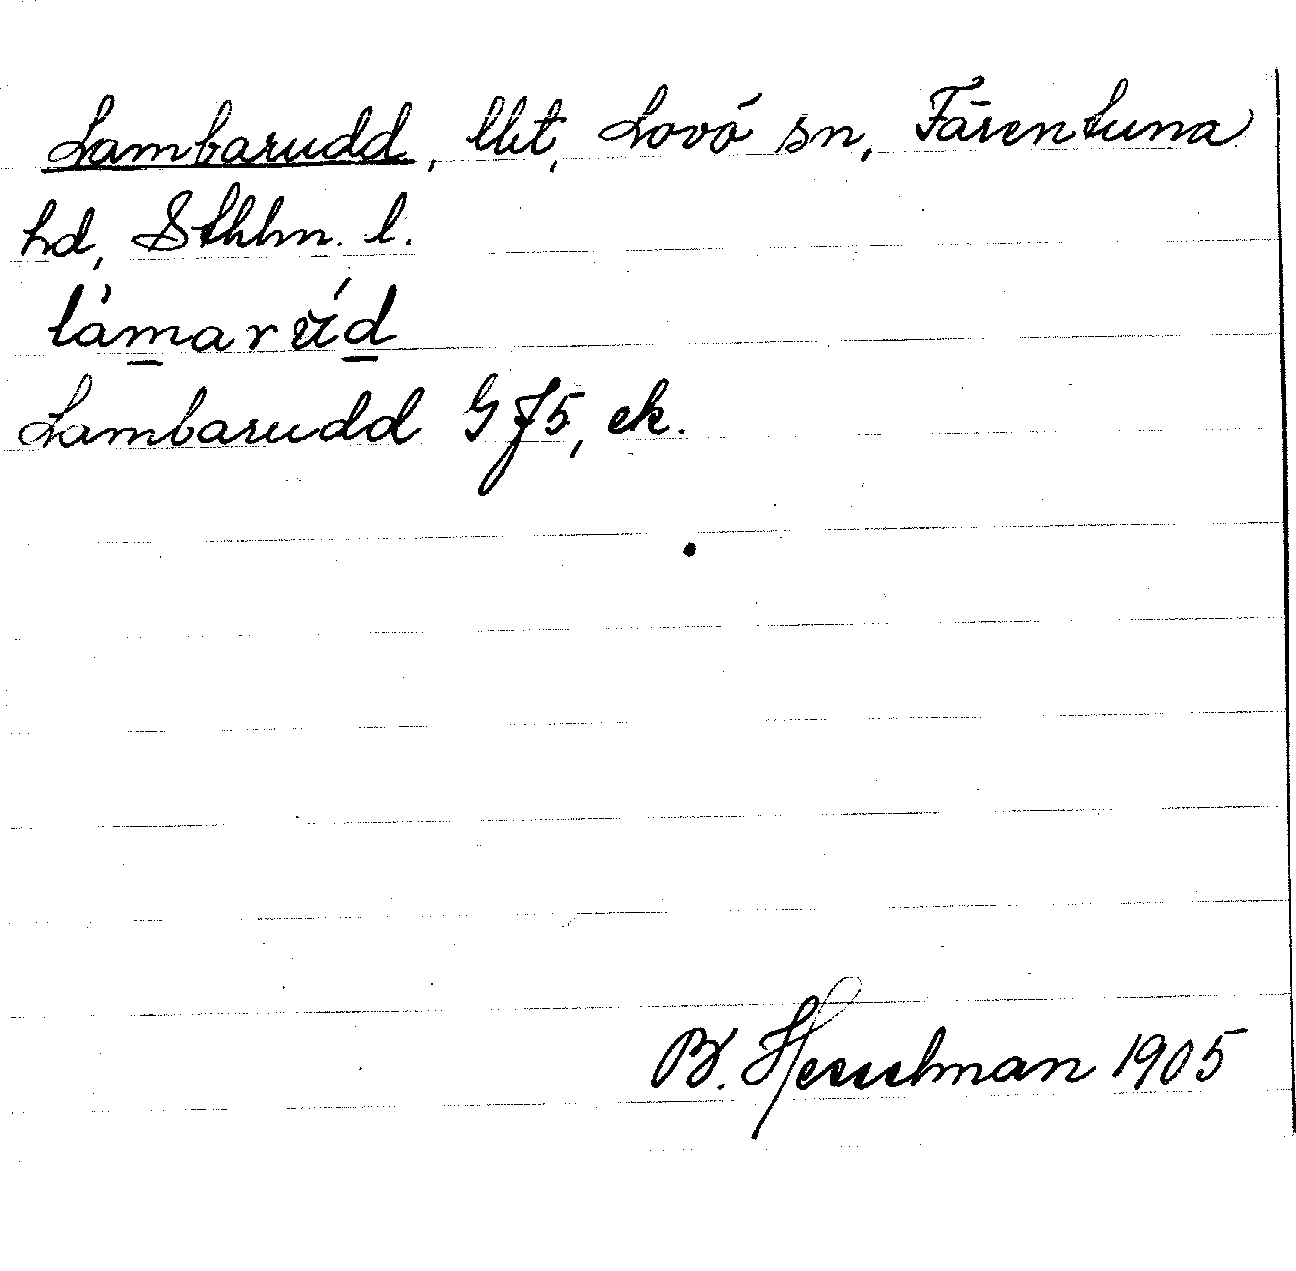 Lambarudd, lht, Lovö sn, Färentuna
hd, Sthlm. l.
làmarúd
Lambarudd GJ5, ek.
B. Hesselman 1905